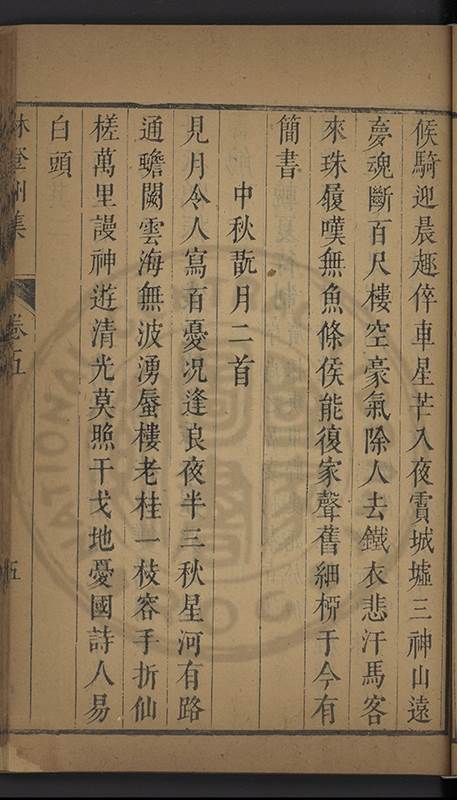 候騎迎晨趣倅車星芒入夜霣城墟三神山遠
夢魂斷百尺樓空豪氣除人去鐵衣悲汗馬客
來珠履嘆無魚條侯能復家聲舊細桞于今有
簡書
中秋翫月二首
見月令人寫百憂况逢良夜半三秋星河有路
通蟾闕雲海無波湧蜃樓老桂一枝容手折仙
槎萬里謾神遊清光莫照干戈地憂國詩人易
白頭
林登州集
卷五
五